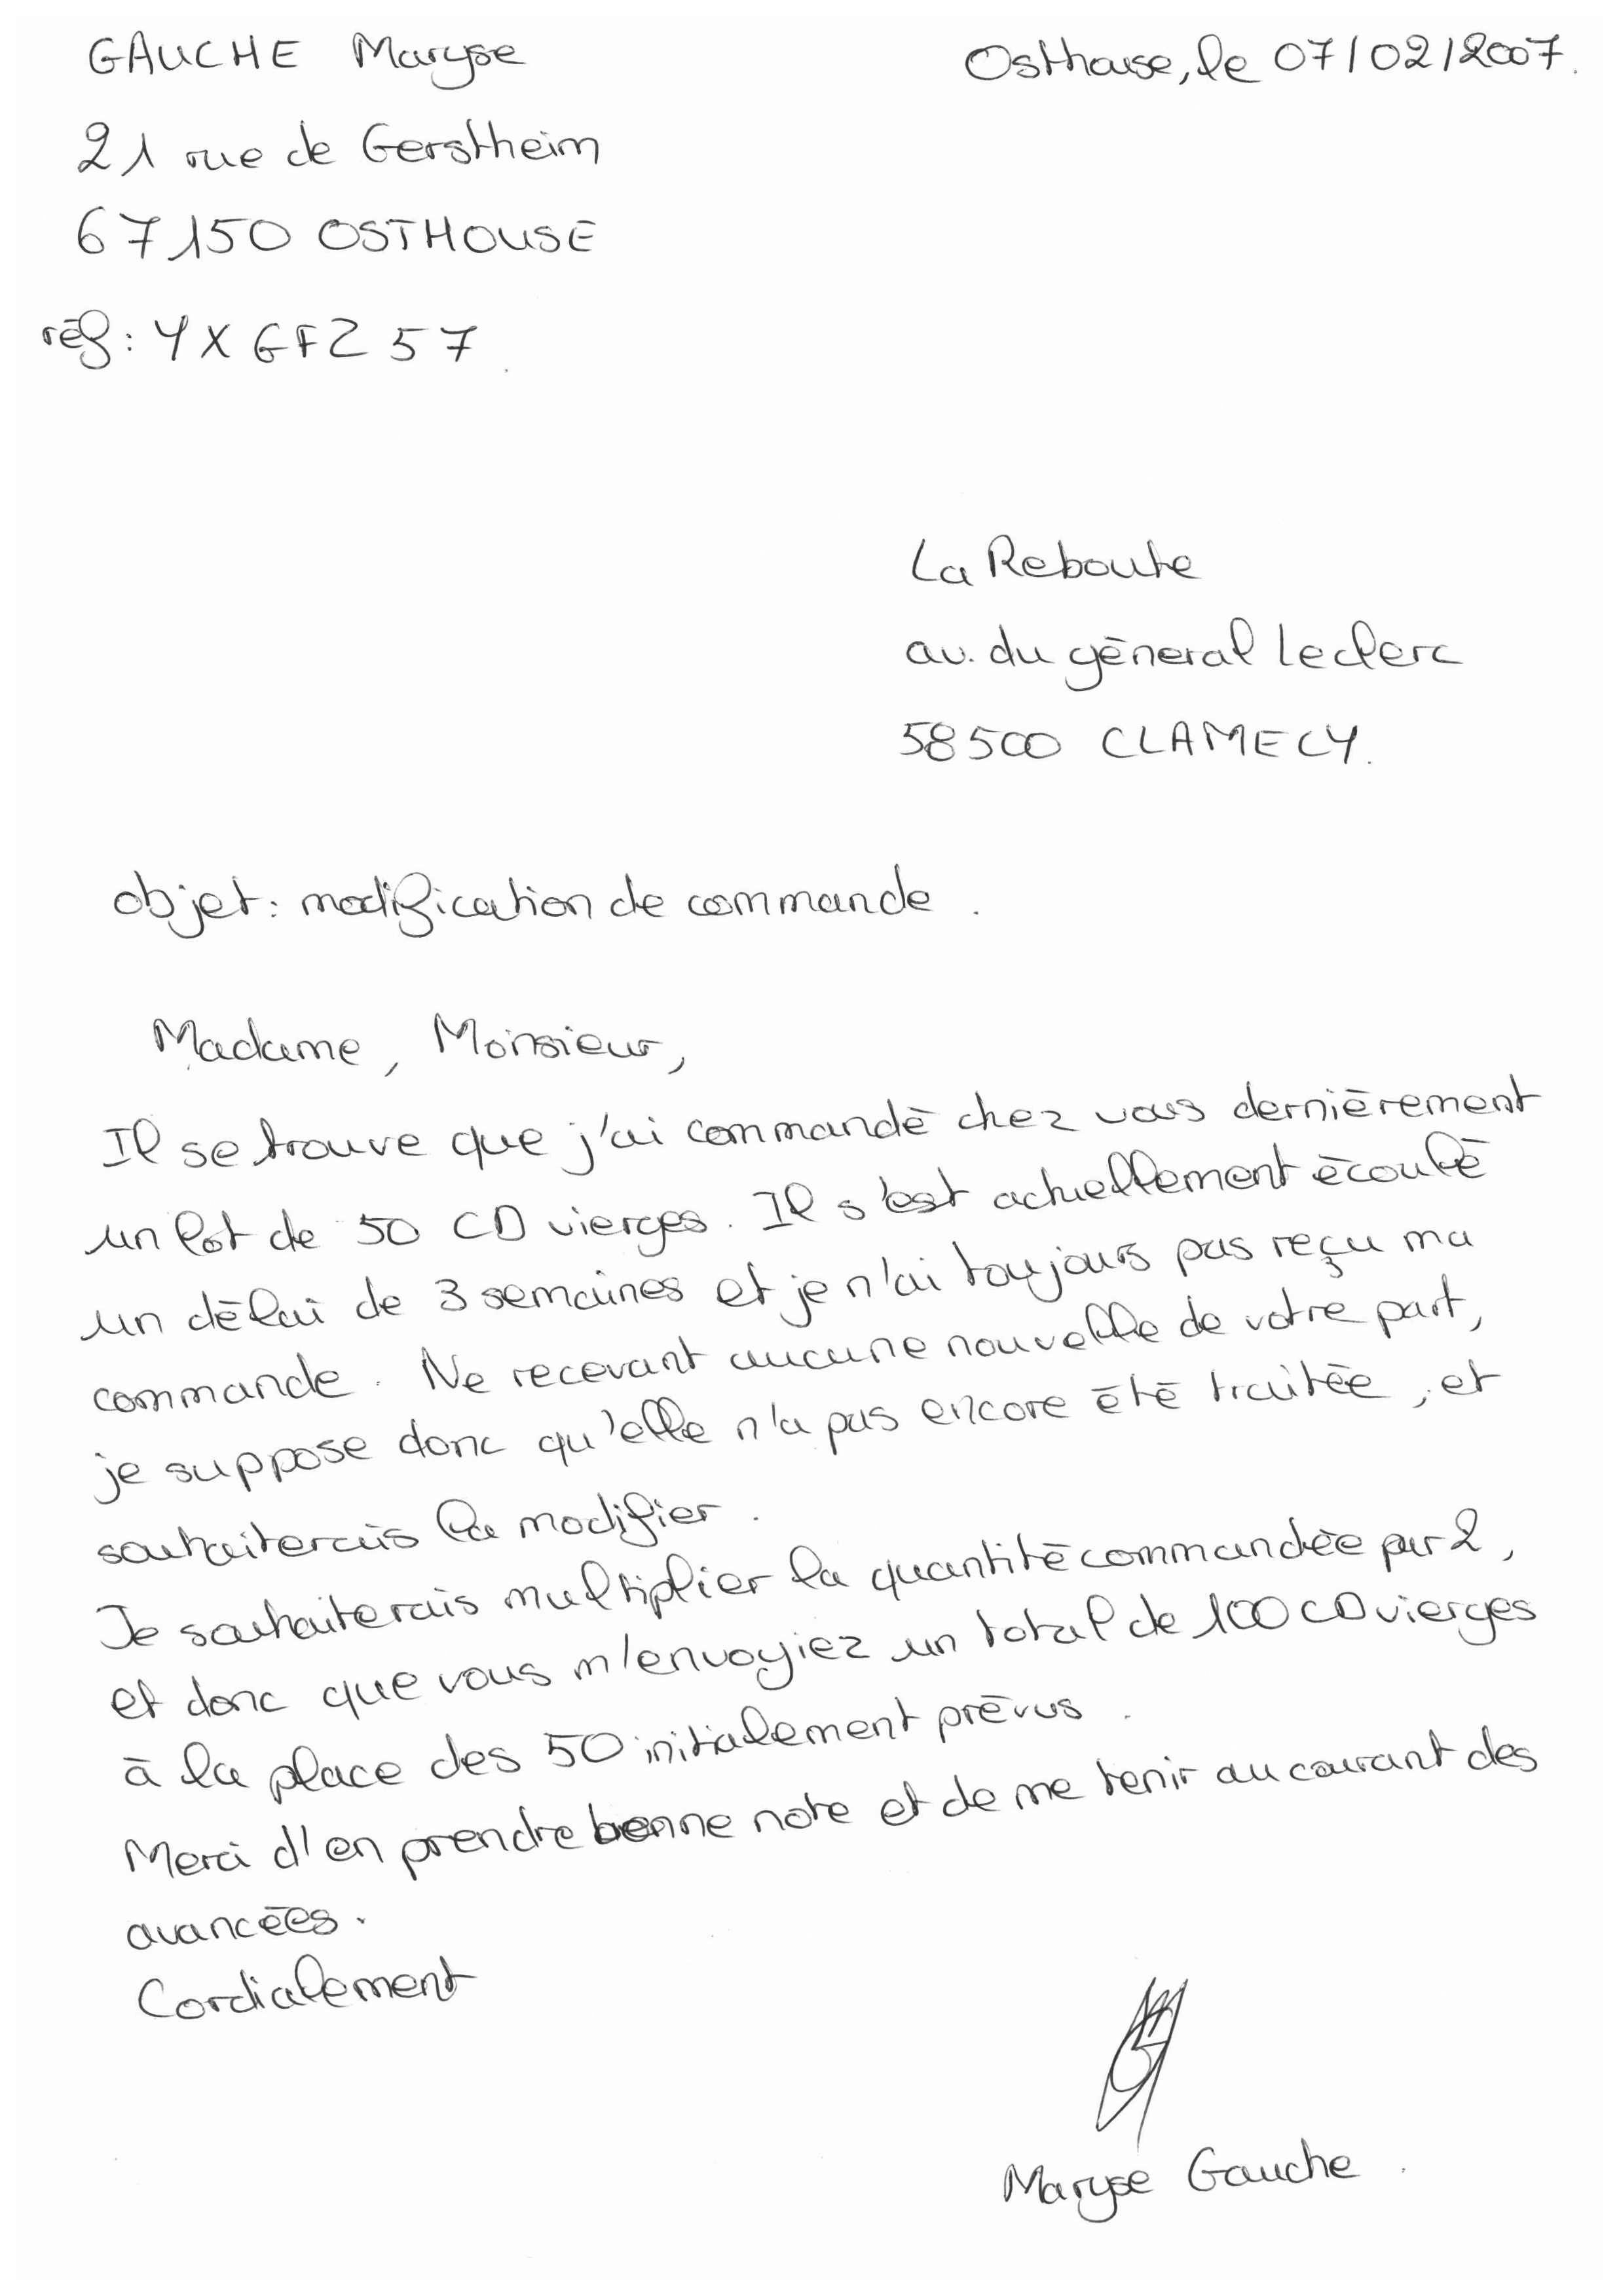 GAUCHE Maryse
Osthouse, le 07/02/2007.
21 rue de Gerstheim
67150 OSTHOUSE
réf : YXGFZ57
La Reboute
av. du géneral Leclerc
58500 CLAMECY.
objet : modification de commande.
Madame, Monsieur,
Il se trouve que j'ai commandé chez vous dernièrement
un lot de 50 CD vierges. Il s'est actuellement écoulé
un délai de 3 semaines et je n'ai toujours pas reçu ma
commande. Ne recevant aucune nouvelle de votre part,
je suppose donc qu'elle n'a pas encore été traitée, et
souhaiterais la modifier.
Je souhaiterais multiplier la quantité commandée par 2,
et donc que vous m'envoyiez un total de 100 CD vierges
à la place des 50 initialement prévus.
Merci d'en prendre bonne note et de me tenir au courant des
avancées.
Cordialement
Maryse Gauche.